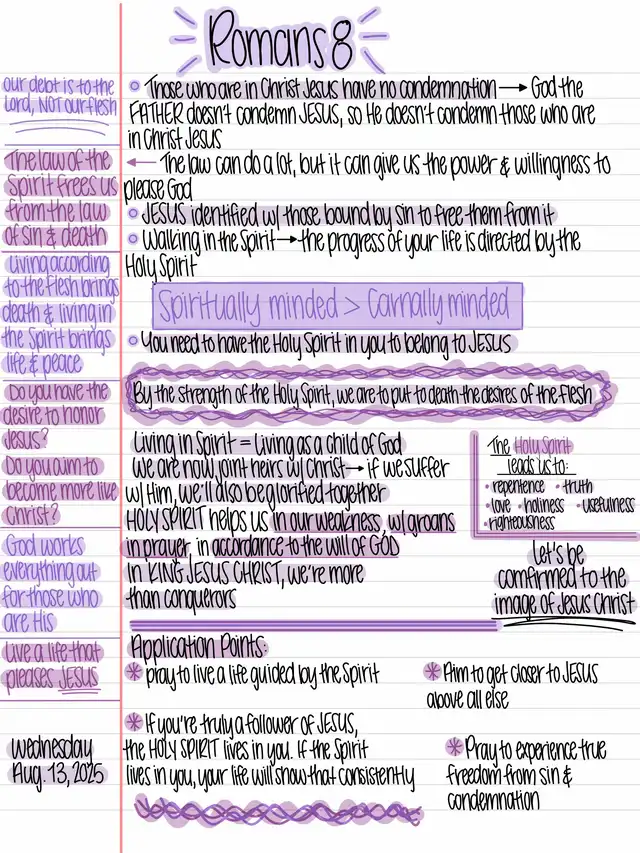 Romans 8
our debt is to the
Lord, NOT our flesh
The law of the
Spirit frees us
from the law
of sin & death
Living according
to the flesh brings
death & living in
the Spirit brings
life & peace
Do you have the
desire to honor
Jesus?
Do you aim to
become more like
Christ?
God works
everything out
for those who
are His
Live a life that
pleases JESUS
Wednesday
Aug. 13, 2025
Those who are in Christ Jesus have no condemnation → God the
FATHER doesn't condemn JESUS, so He doesn't condemn those who are
in Christ Jesus
← The law can do a lot, but it can give us the power & willingness to
please God
JESUS identified w/ those bound by sin to free them from it
Walking in the Spirit → the progress of your life is directed by the
Holy Spirit
Spiritually minded > Carnally minded
You need to have the Holy Spirit in you to belong to JESUS
By the strength of the Holy Spirit, we are to put to death the desires of the flesh
Living in Spirit = Living as a child of God
We are now joint heirs w/ Christ → if we suffer
w/ Him, we'll also be glorified together
HOLY SPIRIT helps us in our weakness, w/ groans
in prayer, in accordance to the will of GOD
In KING JESUS CHRIST, we're more
than conquerors
The Holy Spirit
leads us to:
• repentence • truth
• love • holiness • usefulness
• righteousness
Let's be
comfirmed to the
image of Jesus Christ
Application Points:
* pray to live a life guided by the Spirit
* Aim to get closer to JESUS
above all else
* If you're truly a follower of JESUS,
the HOLY SPIRIT lives in you. If the Spirit
lives in you, your life will show that consistently
* Pray to experience true
freedom from sin &
condemnation